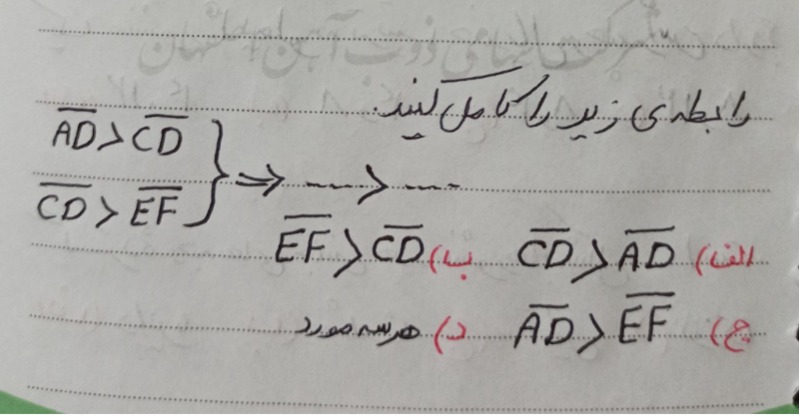 رابطه‌ی زیر را کامل کنید.
AD > CD
CD > EF } ⇒ ---- > ----
الف) CD > AD ب) EF > CD
ج) AD > EF د) هر سه مورد